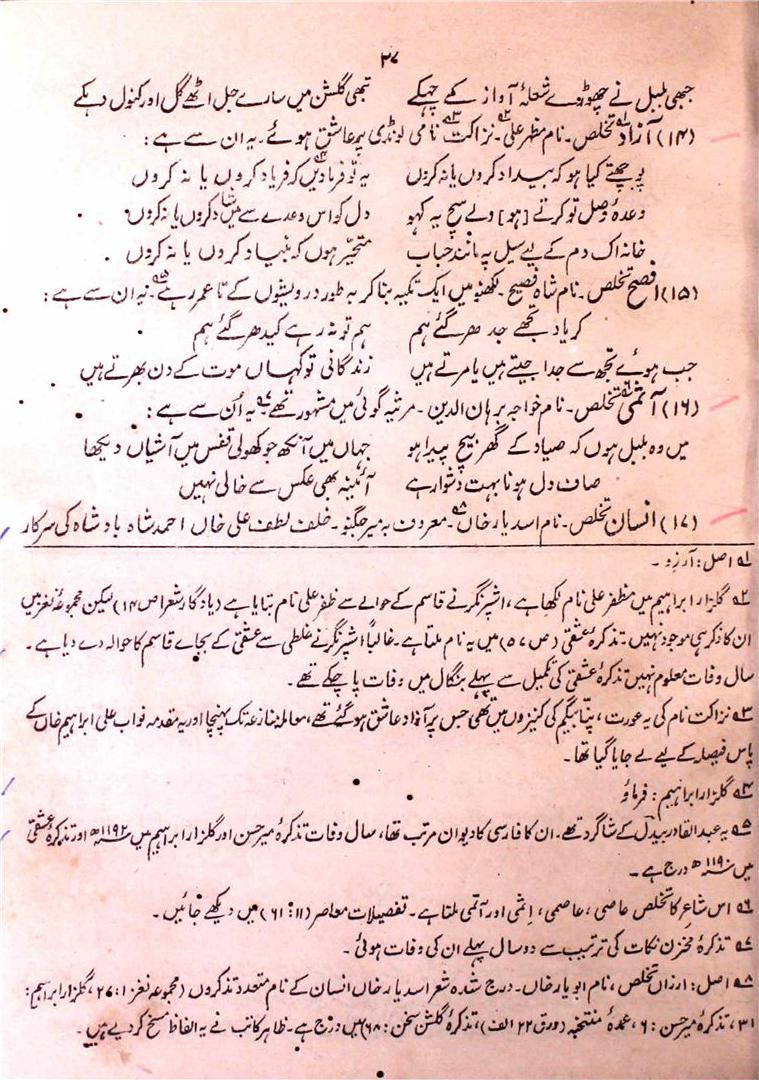 ۳۷
جبھی بلبل نے چھوڑے شعلۂ آواز کے چہکے تبھی گلشن میں سارے جل اٹھے گل اور کنول دہکے
(۱۴) آزاد۱ تخلص۔ نام مظہر علی۲۔ نزاکت۳ نامی لونڈی پر عاشق ہوئے۔ یہ ان سے ہے:
پوچھتے کیا ہو کہ بیداد کروں یا نہ کروں یہ تو فرمادیں۴ کہ فریاد کروں یا نہ کروں
وعدۂ وصل تو کرتے [ہو] ولے سچ یہ کہو دل کو اس وعدے سے میں شاد کروں یا نہ کروں
خانہ اک دم کے لیے سیل پہ مانند حباب متحیّر ہوں کہ بنیاد کروں یا نہ کروں
(۱۵) افصح تخلص۔ نام شاہ فصیح۔ لکھنؤ میں ایک تکیہ بنا کر بہ طور درویشوں کے تا عمر رہے۵۔ یہ ان سے ہے:
کر یاد تجھے جدھر گئے ہم ہم تو نہ رہے کیدھر گئے ہم
جب ہوئے تجھ سے جدا جیتے ہیں یا مرتے ہیں زندگانی تو کہاں موت کے دن بھرتے ہیں
(۱۶) آثمی۶ تخلص۔ نام خواجہ برہان الدین۔ مرثیہ گوئی میں مشہور تھے۷۔ یہ اُن سے ہے:
میں وہ بلبل ہوں کہ صیاد کے گھر بیچ پیدا ہو جہاں میں آنکھ جو کھولی قفس میں آشیاں دیکھا
صاف دل ہونا بہت دشوار ہے آئینہ بھی عکس سے خالی نہیں
(۱۷) انسان تخلص۔ نام اسد یار خاں۸۔ معروف بہ میر جگنو۔ خلف لطف علی خاں احمد شاہ بادشاہ کی سرکار
۱؎ اصل: آرزو۔
۲؎ گلزار ابراہیم میں مظفر علی نام لکھا ہے، اشپرنگر نے قاسم کے حوالے سے ظفر علی نام بتایا ہے (یادگار شعرا ص ۱۴) لیکن مجموعۂ نغز میں
ان کا ذکر ہی موجود نہیں۔ تذکرۂ عشقی (ص ۵۷) میں یہ نام ملتا ہے۔ غالباً اشپرنگر نے غلطی سے عشقی کے بجاے قاسم کا حوالہ دے دیا ہے۔
سال وفات معلوم نہیں تذکرۂ عشقی کی تکمیل سے پہلے بنگال میں وفات پا چکے تھے۔
۳؎ نزاکت نام کی یہ عورت، پنّا بیگم کی کنیزوں میں تھی جس پر آزاد عاشق ہو گئے تھے، معاملہ تنازعہ تک پہنچا اور یہ مقدمہ نواب علی ابراہیم خاں کے
پاس فیصلہ کے لیے لے جایا گیا تھا۔
۴؎ گلزار ابراہیم: فرماؤ
۵؎ یہ عبد القادر بیدل کے شاگرد تھے۔ ان کا فارسی کا دیوان مرتب تھا، سال وفات تذکرۂ میر حسن اور گلزار ابراہیم میں ۱۱۹۲ھ اور تذکرۂ عشقی
میں ۱۱۹۰ھ درج ہے۔
۶؎ اس شاعر کا تخلص عاصی، عاصمی، اِثمی اور آثمی ملتا ہے۔ تفصیلات معاصر (۱۱: ۶۱) میں دیکھے جائیں۔
۷؎ تذکرۂ مخزن نکات کی ترتیب سے دو سال پہلے ان کی وفات ہوئی۔
۸؎ اصل: ارزاں تخلص، نام ابو یار خاں۔ درج شدہ شعر اسد یار خاں انسان کے نام متعدد تذکروں (مجموعۂ نغز ۱: ۲۷، گلزار ابراہیم:
۳۱، تذکرۂ میر حسن: ۶، عمدۂ منتخبہ (ورق ۲۲ الف)، تذکرۂ گلشن سخن: ۶۸) میں درج ہے۔ ظاہر کاتب نے یہ الفاظ مسخ کر دیے ہیں۔